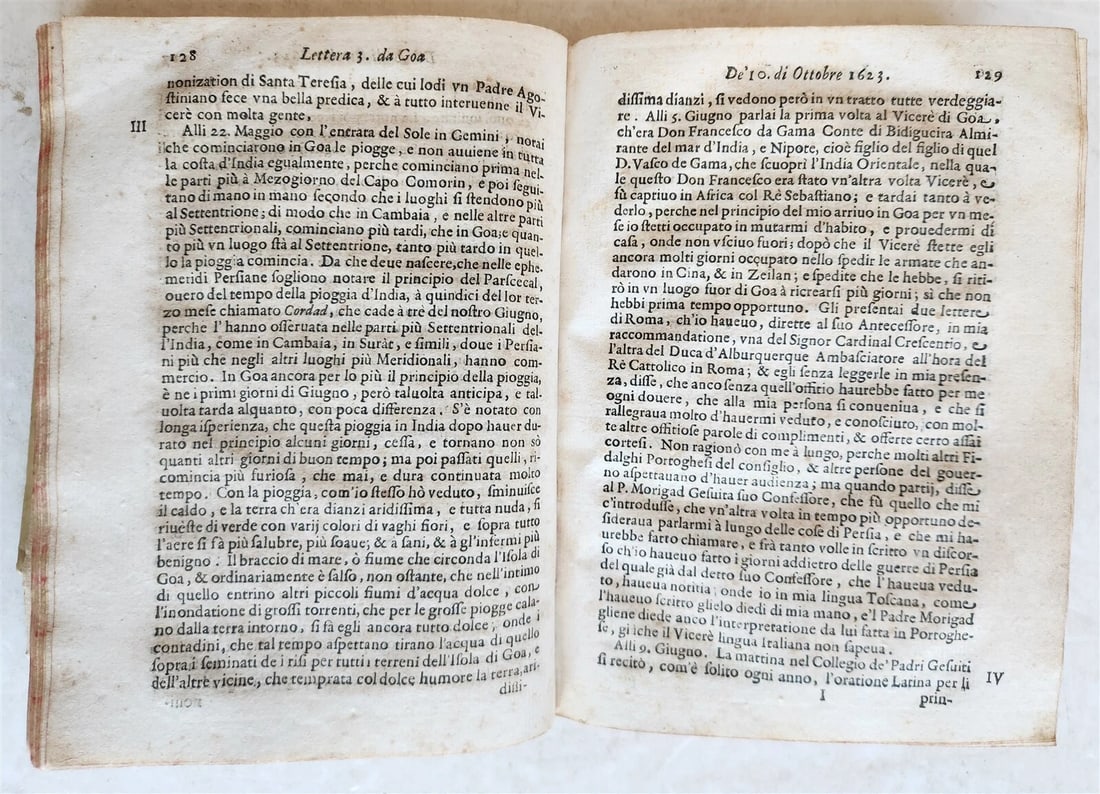 128
Lettera 3. da Goa
nonization di Santa Teresia, delle cui lodi vn Padre Ago-
stiniano fece vna bella predica, & à tutto interuenne il Vi-
cerè con molta gente,
III
Alli 22. Maggio con l'entrata del Sole in Gemini, notai
che cominciarono in Goa le piogge, e non auuiene in tutta
la costa d'India egualmente, perche cominciano prima nel-
le parti più à Mezogiorno del Capo Comorin, e poi segui-
tano di mano in mano secondo che i luoghi si stendono più
al Settentrione; di modo che in Cambaia, e nelle altre parti
più Settentrionali, cominciano più tardi, che in Goa; e quan-
to più vn luogo stà al Settentrione, tanto più tardo in quel-
lo la pioggia comincia. Da che deue nascere, che nelle ephe-
meridi Persiane sogliono notare il principio del Parscecal,
ouero del tempo della pioggia d'India, à quindici del lor ter-
zo mese chiamato Cordad, che cade à trè del nostro Giugno,
perche l'hanno osseruata nelle parti più Settentrionali del-
l'India, come in Cambaia, in Suràt, e simili, doue i Persia-
ni più che negli altri luoghi più Meridionali, hanno com-
mercio. In Goa ancora per lo più il principio della pioggia,
è ne i primi giorni di Giugno, però taluolta anticipa, e tal-
uolta tarda alquanto, con poca differenza. S'è notato con
longa isperienza, che questa pioggia in India dopo hauer du-
rato nel principio alcuni giorni, cessa, e tornano non sò
quanti altri giorni di buon tempo; ma poi passati quelli, ri-
comincia più furiosa, che mai, e dura continuata molto
tempo. Con la pioggia, com'io stesso hò veduto, sminuisce
il caldo, e la terra ch'era dianzi aridissima, e tutta nuda, si
riueste di verde con varij colori di vaghi fiori, e sopra tutto
l'aere si fà più salubre, più soaue; & à sani, & à gl'infermi più
benigno. Il braccio di mare, ò fiume che circonda l'Isola di
Goa, & ordinariamente è salso, non ostante, che nell'intimo
di quello entrino altri piccoli fiumi d'acqua dolce, con
l'inondatione di grossi torrenti, che per le grosse piogge cala-
no dalla terra intorno, si fà egli ancora tutto dolce, onde i
contadini, che tal tempo aspettano tirano l'acqua di quello
sopra i seminati de i risi per tutti i terreni dell'Isola di Goa, e
dell'altre vicine, che temprata col dolce humore la terra, ari-
dissi-
De'10. di Ottobre 1623.
129
dissima dianzi, si vedono però in vn tratto tutte verdeggia-
re. Alli 5. Giugno parlai la prima volta al Vicerè di Goa,
ch'era Don Francesco da Gama Conte di Bidigueira Almi-
rante del mar d'India, e Nipote, cioè figlio del figlio di quel
D. Vasco de Gama, che scuoprì l'India Orientale, nella qua-
le questo Don Francesco era stato vn'altra volta Vicerè, e
fù captiuo in Africa col Rè Sebastiano; e tardai tanto à ve-
derlo, perche nel principio del mio arriuo in Goa per vn me-
se io stetti occupato in mutarmi d'habito, e prouedermi di
casa, onde non vsciuo fuori; dopò che il Vicerè stette egli
ancora molti giorni occupato nello spedir le armate che an-
darono in Cina, & in Zeilan; e spedite che le hebbe, si riti-
rò in vn luogo fuor di Goa à ricrearsi più giorni; si che non
hebbi prima tempo opportuno. Gli presentai due lettere
di Roma, ch'io haueuo, dirette al suo Antecessore, in mia
raccommandatione, vna del Signor Cardinal Crescentio, e
l'altra del Duca d'Alburquerque Ambasciatore all'hora del
Rè Cattolico in Roma; & egli senza leggerle in mia presen-
za, disse, che anco senza quell'offitio haurebbe fatto per me
ogni douere, che alla mia persona si conueniua, e che si
rallegraua molto d'hauermi veduto, e conosciuto, con mol-
te altre offitiose parole di complimenti, & offerte certo assai
cortesi. Non ragionò con me à lungo, perche molti altri Fi-
dalghi Portoghesi del consiglio, & altre persone del gouer-
no aspettauano d'hauer audienza; ma quando partij, disse
al P. Morigad Gesuita suo Confessore, che fù quello che mi
c'introdusse, che vn'altra volta in tempo più opportuno de-
sideraua parlarmi à lungo delle cose di Persia, e che mi ha-
urebbe fatto chiamare, e frà tanto volle in scritto vn discor-
so ch'io haueuo fatto i giorni addietro delle guerre di Persia
del quale già dal detto suo Confessore, che l'haueua vedu-
to, haueua notitia; onde io in mia lingua Toscana, come
l'haueuo scritto glielo diedi di mia mano, e'l Padre Morigad
gliene diede anco l'interpretatione da lui fatta in Portoghe-
se, già che il Vicerè lingua Italiana non sapeua.
Alli 9. Giugno. La mattina nel Collegio de' Padri Gesuiti
IV
si recitò, com'è solito ogni anno, l'oratione Latina per li
I
prin-